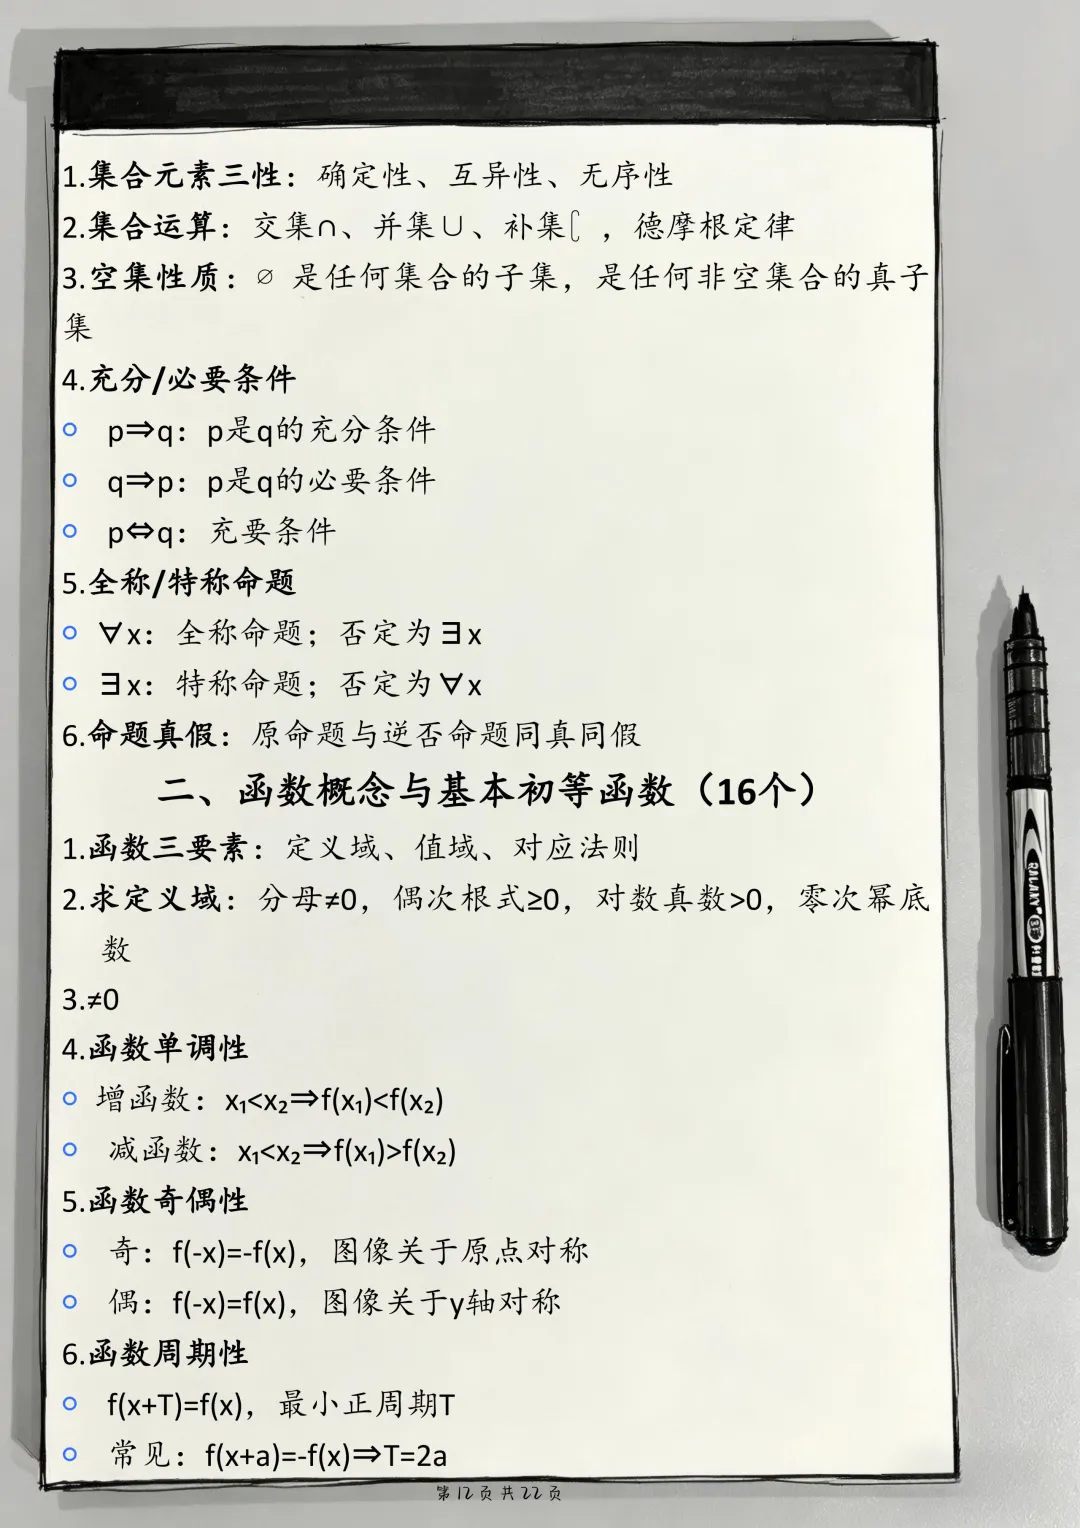 1.集合元素三性：确定性、互异性、无序性
2.集合运算：交集∩、并集∪、补集∁，德摩根定律
3.空集性质：∅ 是任何集合的子集，是任何非空集合的真子
集
4.充分/必要条件
p⇒q：p是q的充分条件
q⇒p：p是q的必要条件
p⇔q：充要条件
5.全称/特称命题
∀x：全称命题；否定为∃x
∃x：特称命题；否定为∀x
6.命题真假：原命题与逆否命题同真同假
二、函数概念与基本初等函数（16个）
1.函数三要素：定义域、值域、对应法则
2.求定义域：分母≠0，偶次根式≥0，对数真数>0，零次幂底
数
3.≠0
4.函数单调性
增函数：x₁<x₂⇒f(x₁)<f(x₂)
减函数：x₁<x₂⇒f(x₁)>f(x₂)
5.函数奇偶性
奇：f(-x)=-f(x)，图像关于原点对称
偶：f(-x)=f(x)，图像关于y轴对称
6.函数周期性
f(x+T)=f(x)，最小正周期T
常见：f(x+a)=-f(x)⇒T=2a
第12页共22页